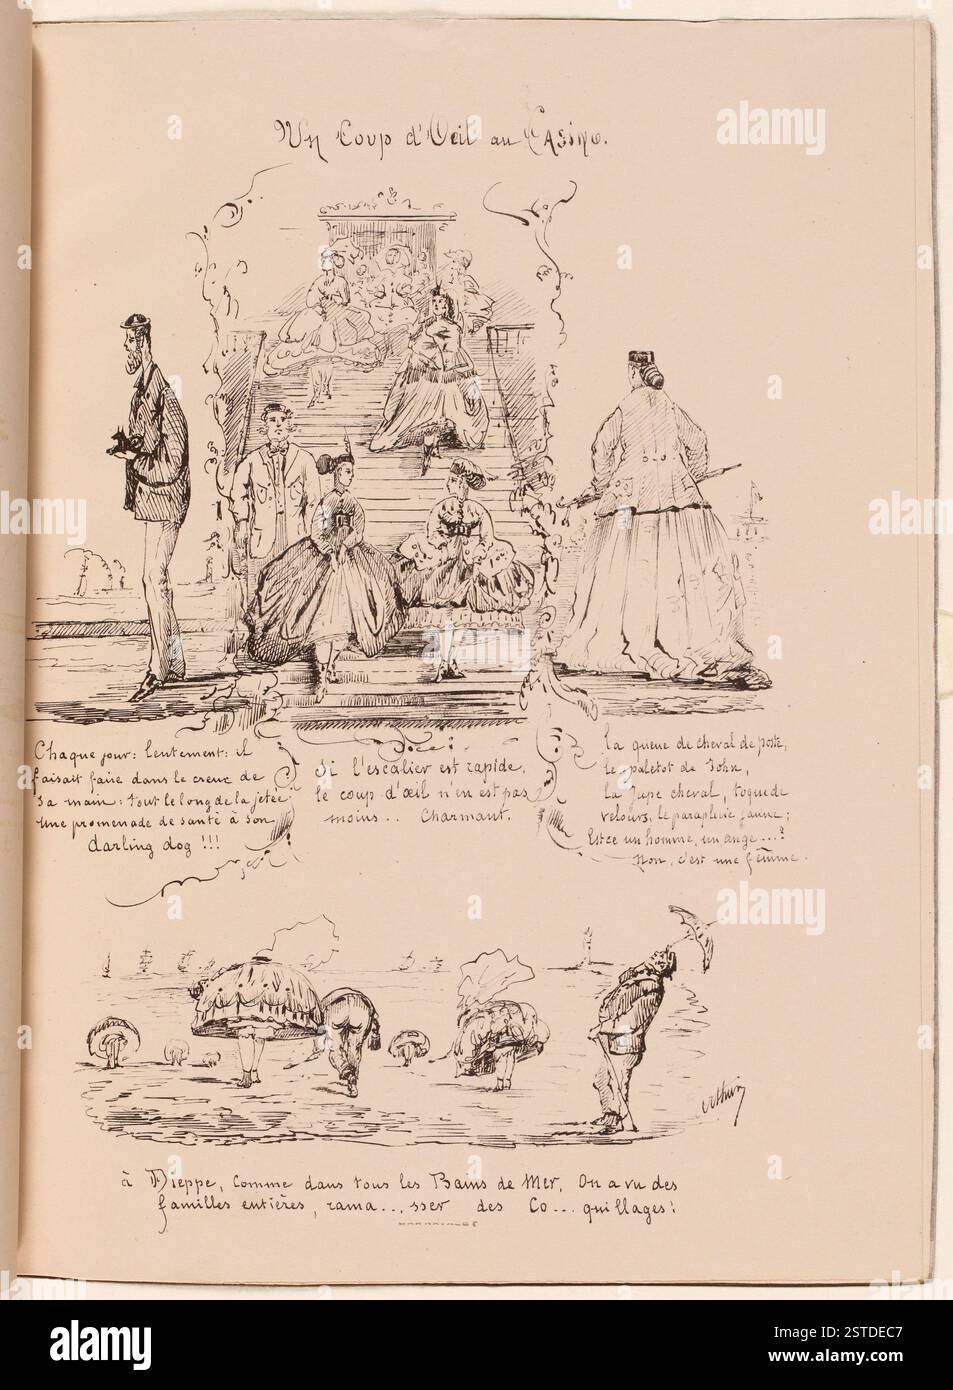 Un Coup d'Oeil au Casino.
Chaque jour: lentement: il
faisait faire dans le creux de
sa main: tout le long de la jetée
une promenade de santé à son
darling dog !!!
Si l'escalier est rapide,
le coup d'œil n'en est pas
moins.. Charmant.
la queue de cheval de poste,
le paletot de John,
la Jupe cheval, toque de
velours, le parapluie jaune;
Est ce un homme, un ange....?
Non, c'est une femme.
à Dieppe, comme dans tous les Bains de Mer, On a vu des
familles entières, rama...sser des Co... quillages!
alamy
alamy
Image ID: 2STDEC7
www.alamy.com